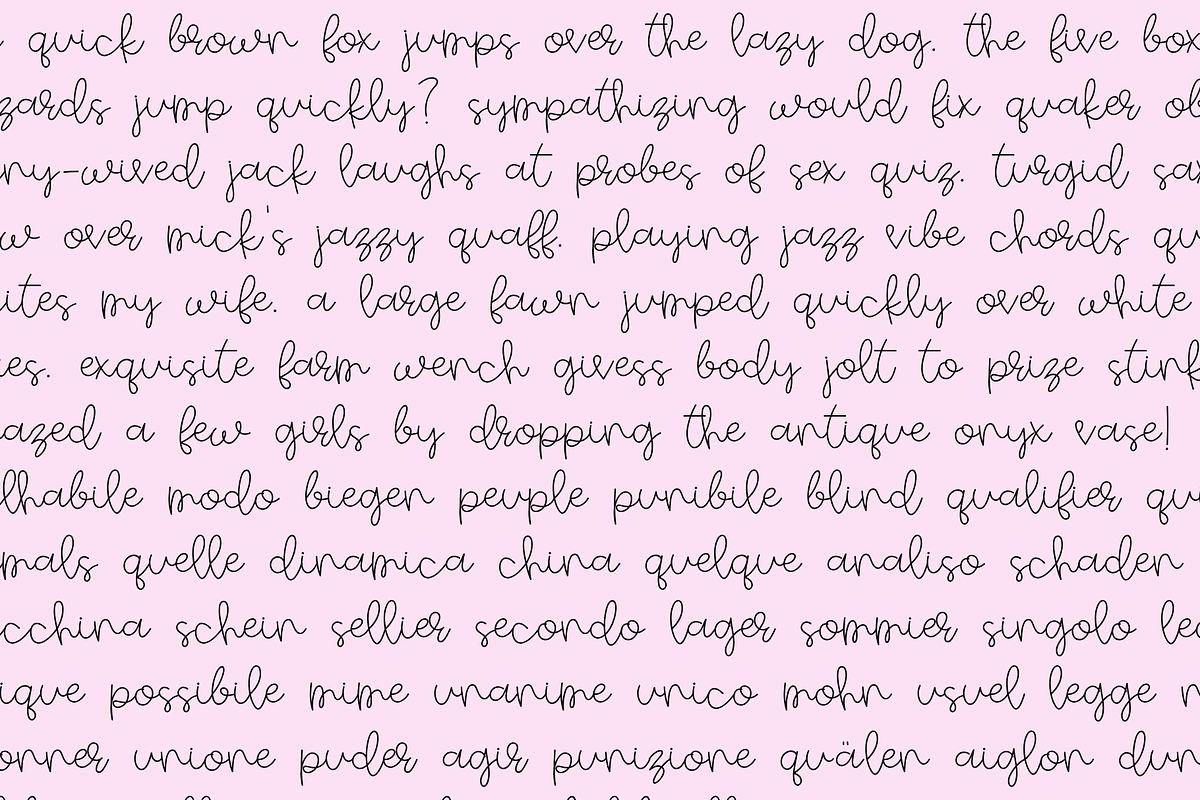 quick brown fox jumps over the lazy dog. the five box
zards jump quickly? sympathizing would fix quaker ob
ny-wived jack laughs at probes of sex quiz. turgid sax
w over mick's jazzy quaff. playing jazz vibe chords qu
ites my wife. a large fawn jumped quickly over white
es. exquisite farm wench givess body jolt to prize stink
azed a few girls by dropping the antique onyx vase!
lhabile modo biegen peuple punibile blind qualifier qu
mals quelle dinamica china quelque analiso schaden
cchina schein sellier secondo lager sommier singolo leg
ique possibile mime unanime unico mohn usuel legge n
onner unione puder agir punizione quälen aiglon dun